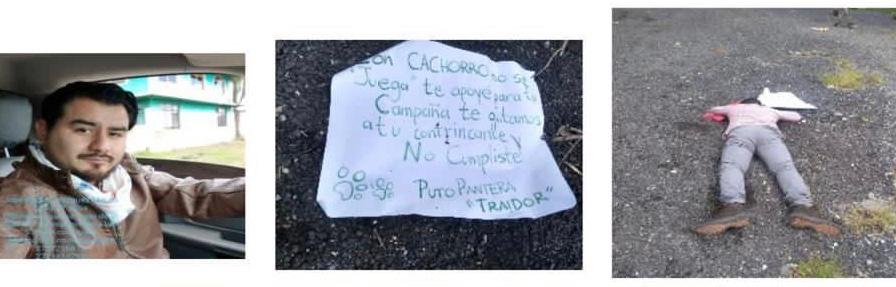 Con CACHORRO no se
"Juega" te apoye para tu
Campaña te quitamos
a tu contrincante y
No Cumpliste
PUTO PANTERA
"TRAIDOR"